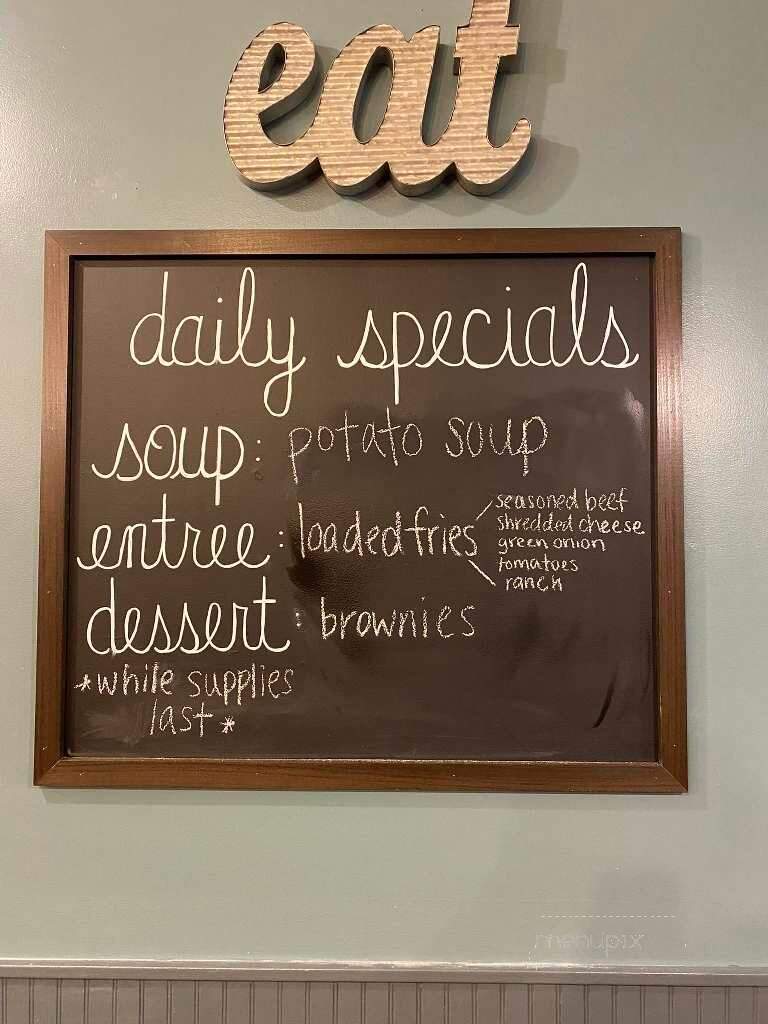 eat
daily specials
soup: potato soup
entree: loaded fries
seasoned beef
shredded cheese
green onion
tomatoes
ranch
dessert: brownies
*while supplies
last*
menupix